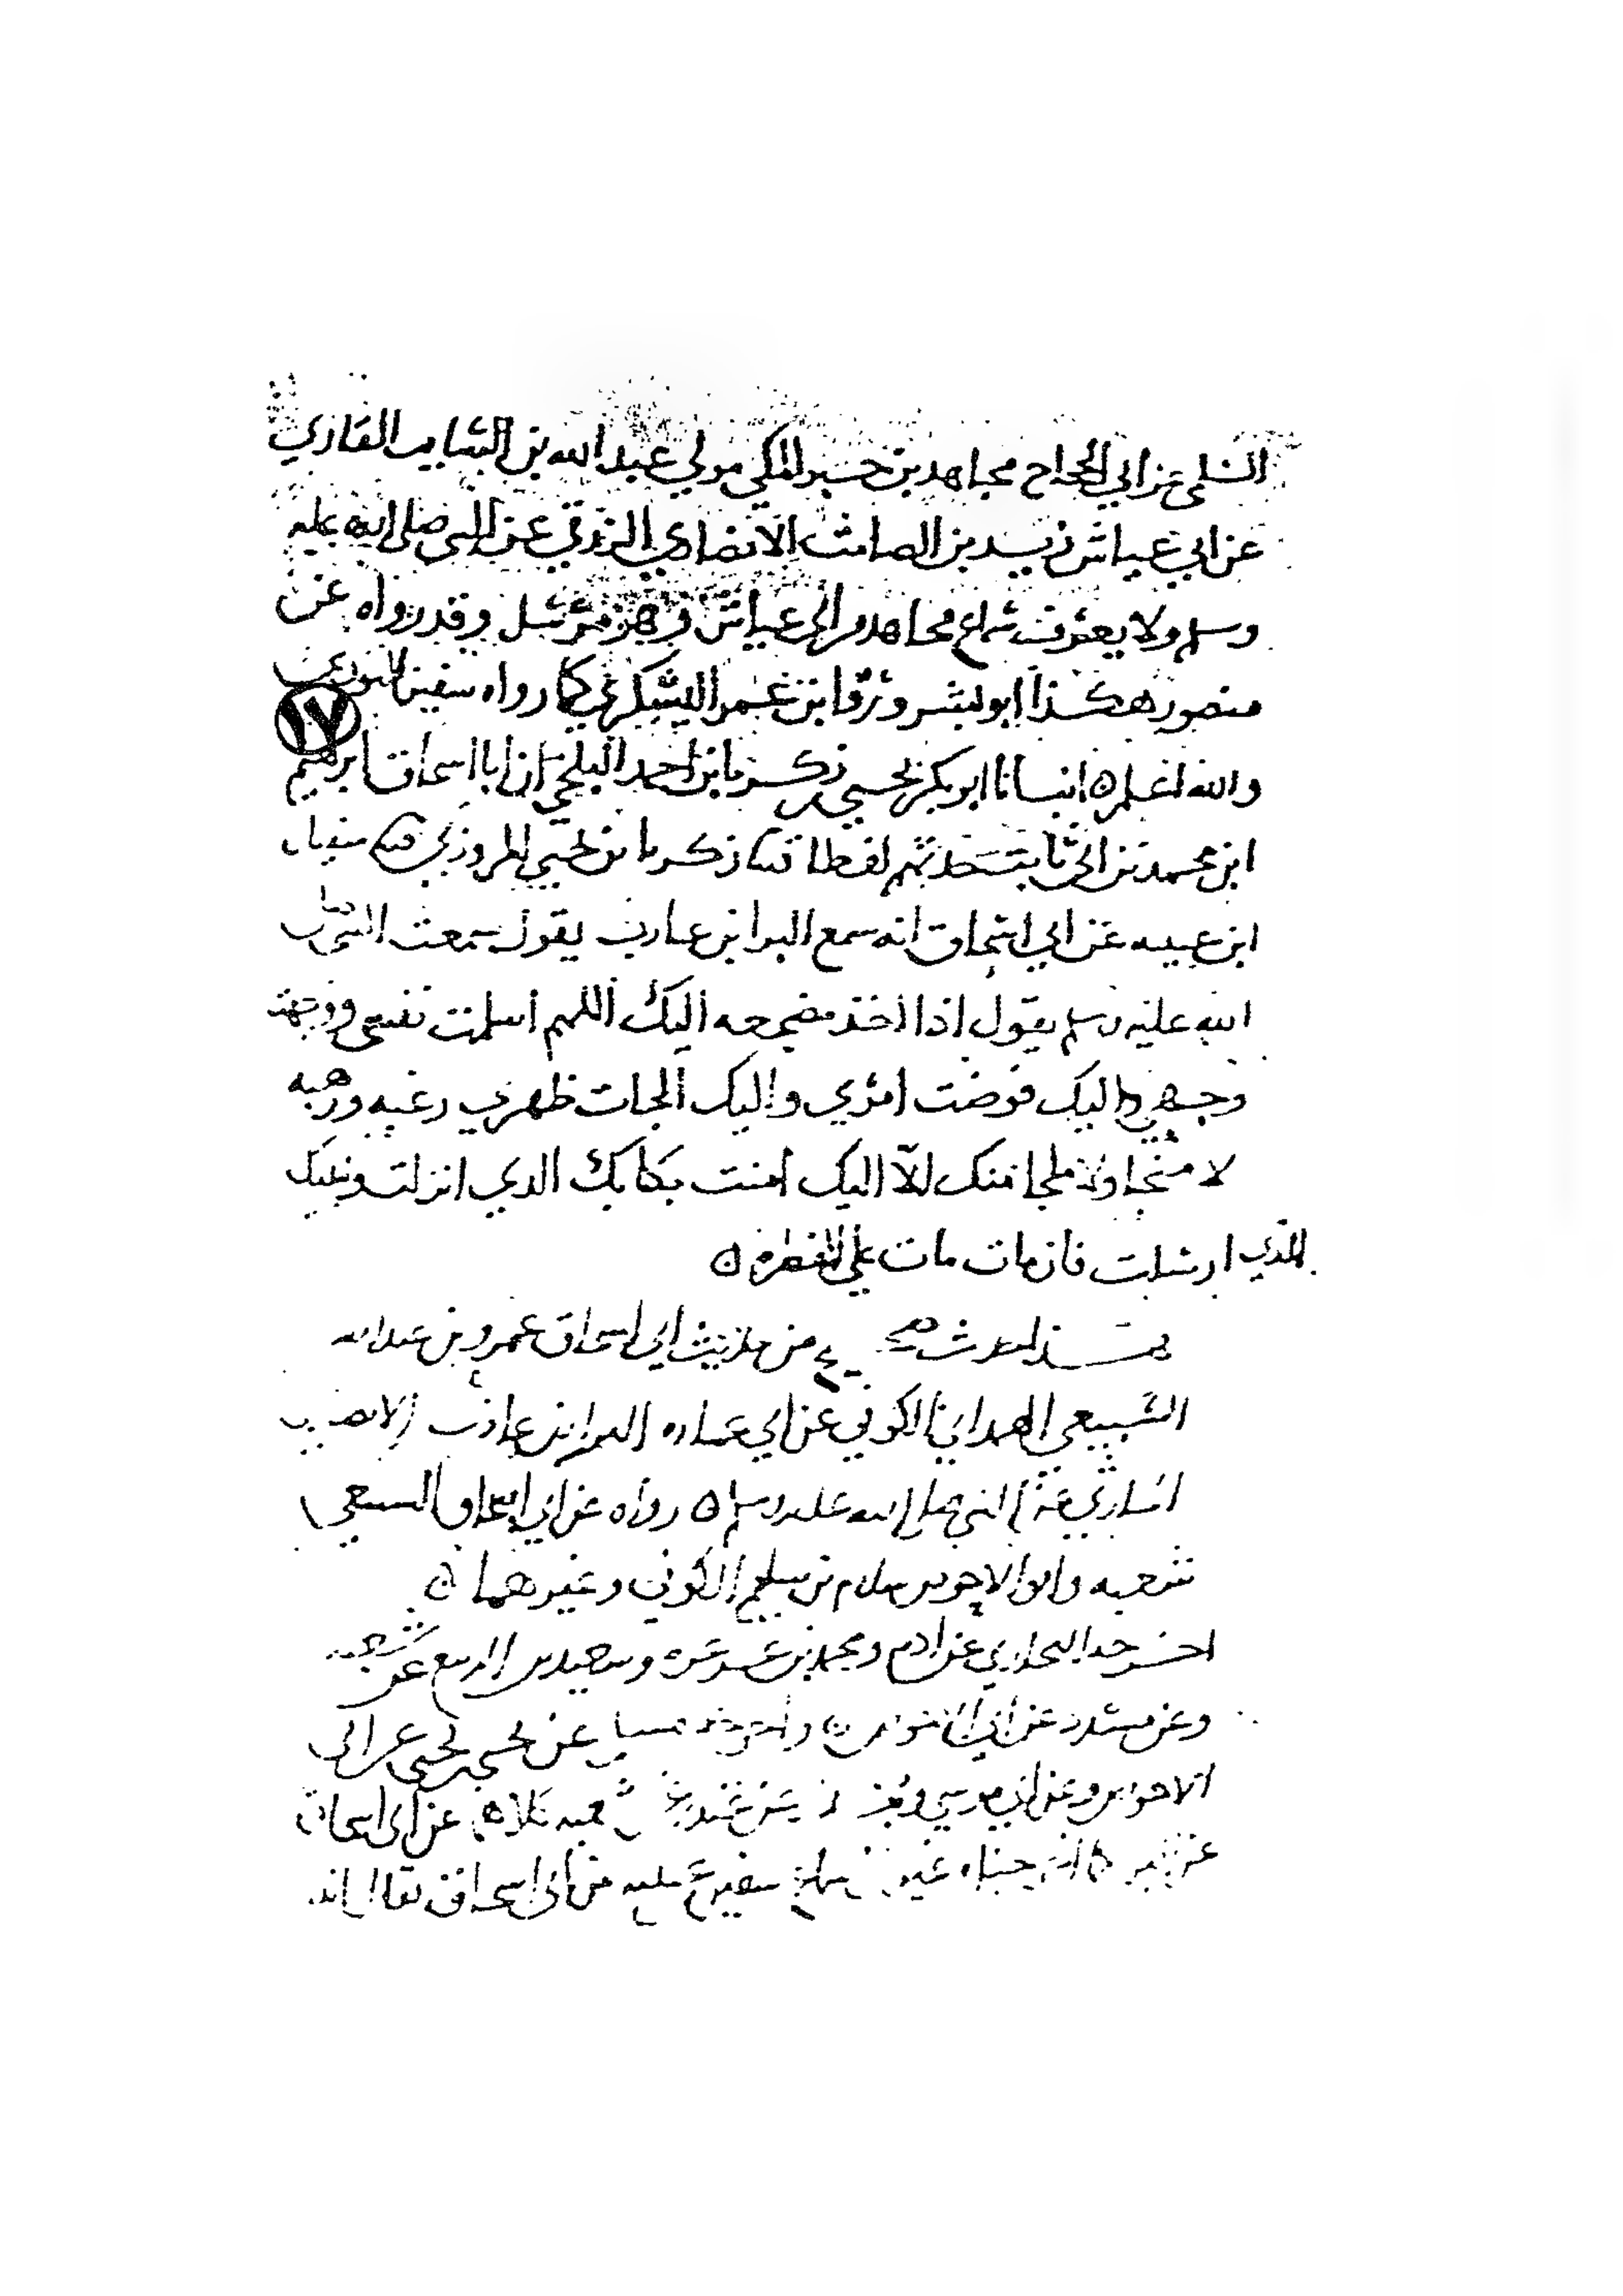 السلمي عن ابي الحجاج مجاهد بن جبر المكي مولي عبد الله بن السايب القاري
عن ابي عياش زيد بن الصامت الانصاري الزرقي عن النبي صلى الله عليه
وسلم ولا يعرف سماع مجاهد من ابي عياش وهو مرسل وقد رواه عن
منصور هكذا ابو بشر ورقا بن عمر اليشكري كما رواه سفين الثوري
١٧
والله اعلم ٥ انبانا ابو بكر يحيى زكريا بن احمد البلخي ان ابا اسحاق ابرهيم
ابن محمد بن ابي ثابت حدثهم لفظا زكريا بن يحيى المروزي سفيان
ابن عيينه عن ابي اسحاق انه سمع البرا بن عازب يقول سمعت النبي صلى
الله عليه وسلم يقول اذا اخذ مضجعه اليك اللهم اسلمت نفسي ووجهت
وجهي واليك فوضت امري واليك الجات ظهري رغبه ورهبه
لا منجا ولا ملجا منك الا اليك امنت بكتابك الذي انزلت ونبيك
الذي ارسلت فان مات مات على الفطره ٥
هذا حديث صحيح من حديث ابي اسحاق عمرو بن عبد الله
السبيعي الهمداني الكوفي عن ابي عماره البرا بن عازب الانصاري
عن النبي صلى الله عليه وسلم ٥ رواه عن ابي اسحاق السبيعي
شعبه وابو الاحوص سلام بن سليم الكوفي وغيرهما ٥
اخرجه البخاري عن ادم ومحمد بن عرعره وسعيد بن الربيع عن شعبه
وعن مسدد عن ابي الاحوص ٥ واخرجه مسلم عن يحيى بن يحيى عن ابي
الاحوص وعن ابي موسى عن غندر عن شعبه كلاهما عن ابي اسحاق
عن ابي اسحاق